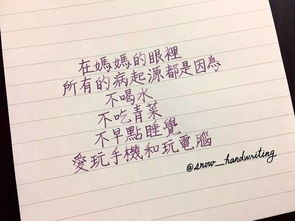 在媽媽的眼裡
所有的病起源都是因為
不喝水
不吃青菜
不早點睡覺
愛玩手機和玩電腦
@snow_handwriting